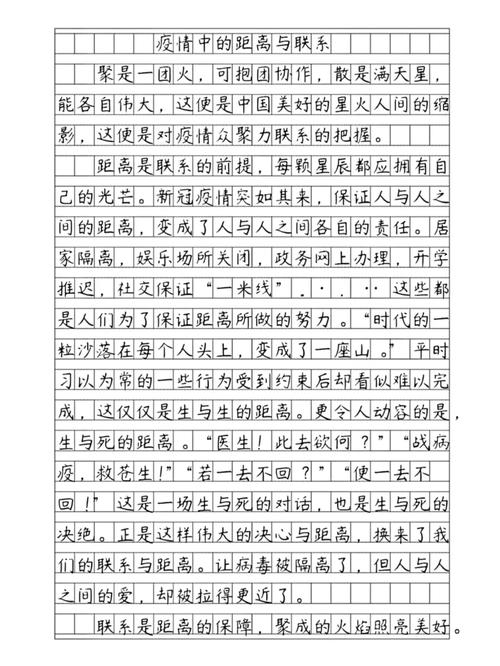 疫情中的距离与联系
聚是一团火，可抱团协作，散是满天星，
能各自伟大，这便是中国美好的星火人间的缩
影，这便是对疫情众聚力联系的把握。
距离是联系的前提，每颗星辰都应拥有自
己的光芒。新冠疫情突如其来，保证人与人之
间的距离，变成了人与人之间各自的责任。居
家隔离，娱乐场所关闭，政务网上办理，开学
推迟，社交保证“一米线”······这些都
是人们为了保证距离所做的努力。“时代的一
粒沙落在每个人头上，变成了一座山。”平时
习以为常的一些行为受到约束后却看似难以完
成，这仅仅是生与生的距离。更令人动容的是，
生与死的距离。“医生！此去欲何？”“战病
疫，救苍生！”“若一去不回？”“便一去不
回！”这是一场生与死的对话，也是生与死的
决绝。正是这样伟大的决心与距离，换来了我
们的联系与距离。让病毒被隔离了，但人与人
之间的爱，却被拉得更近了。
联系是距离的保障，聚成的火焰照亮美好。